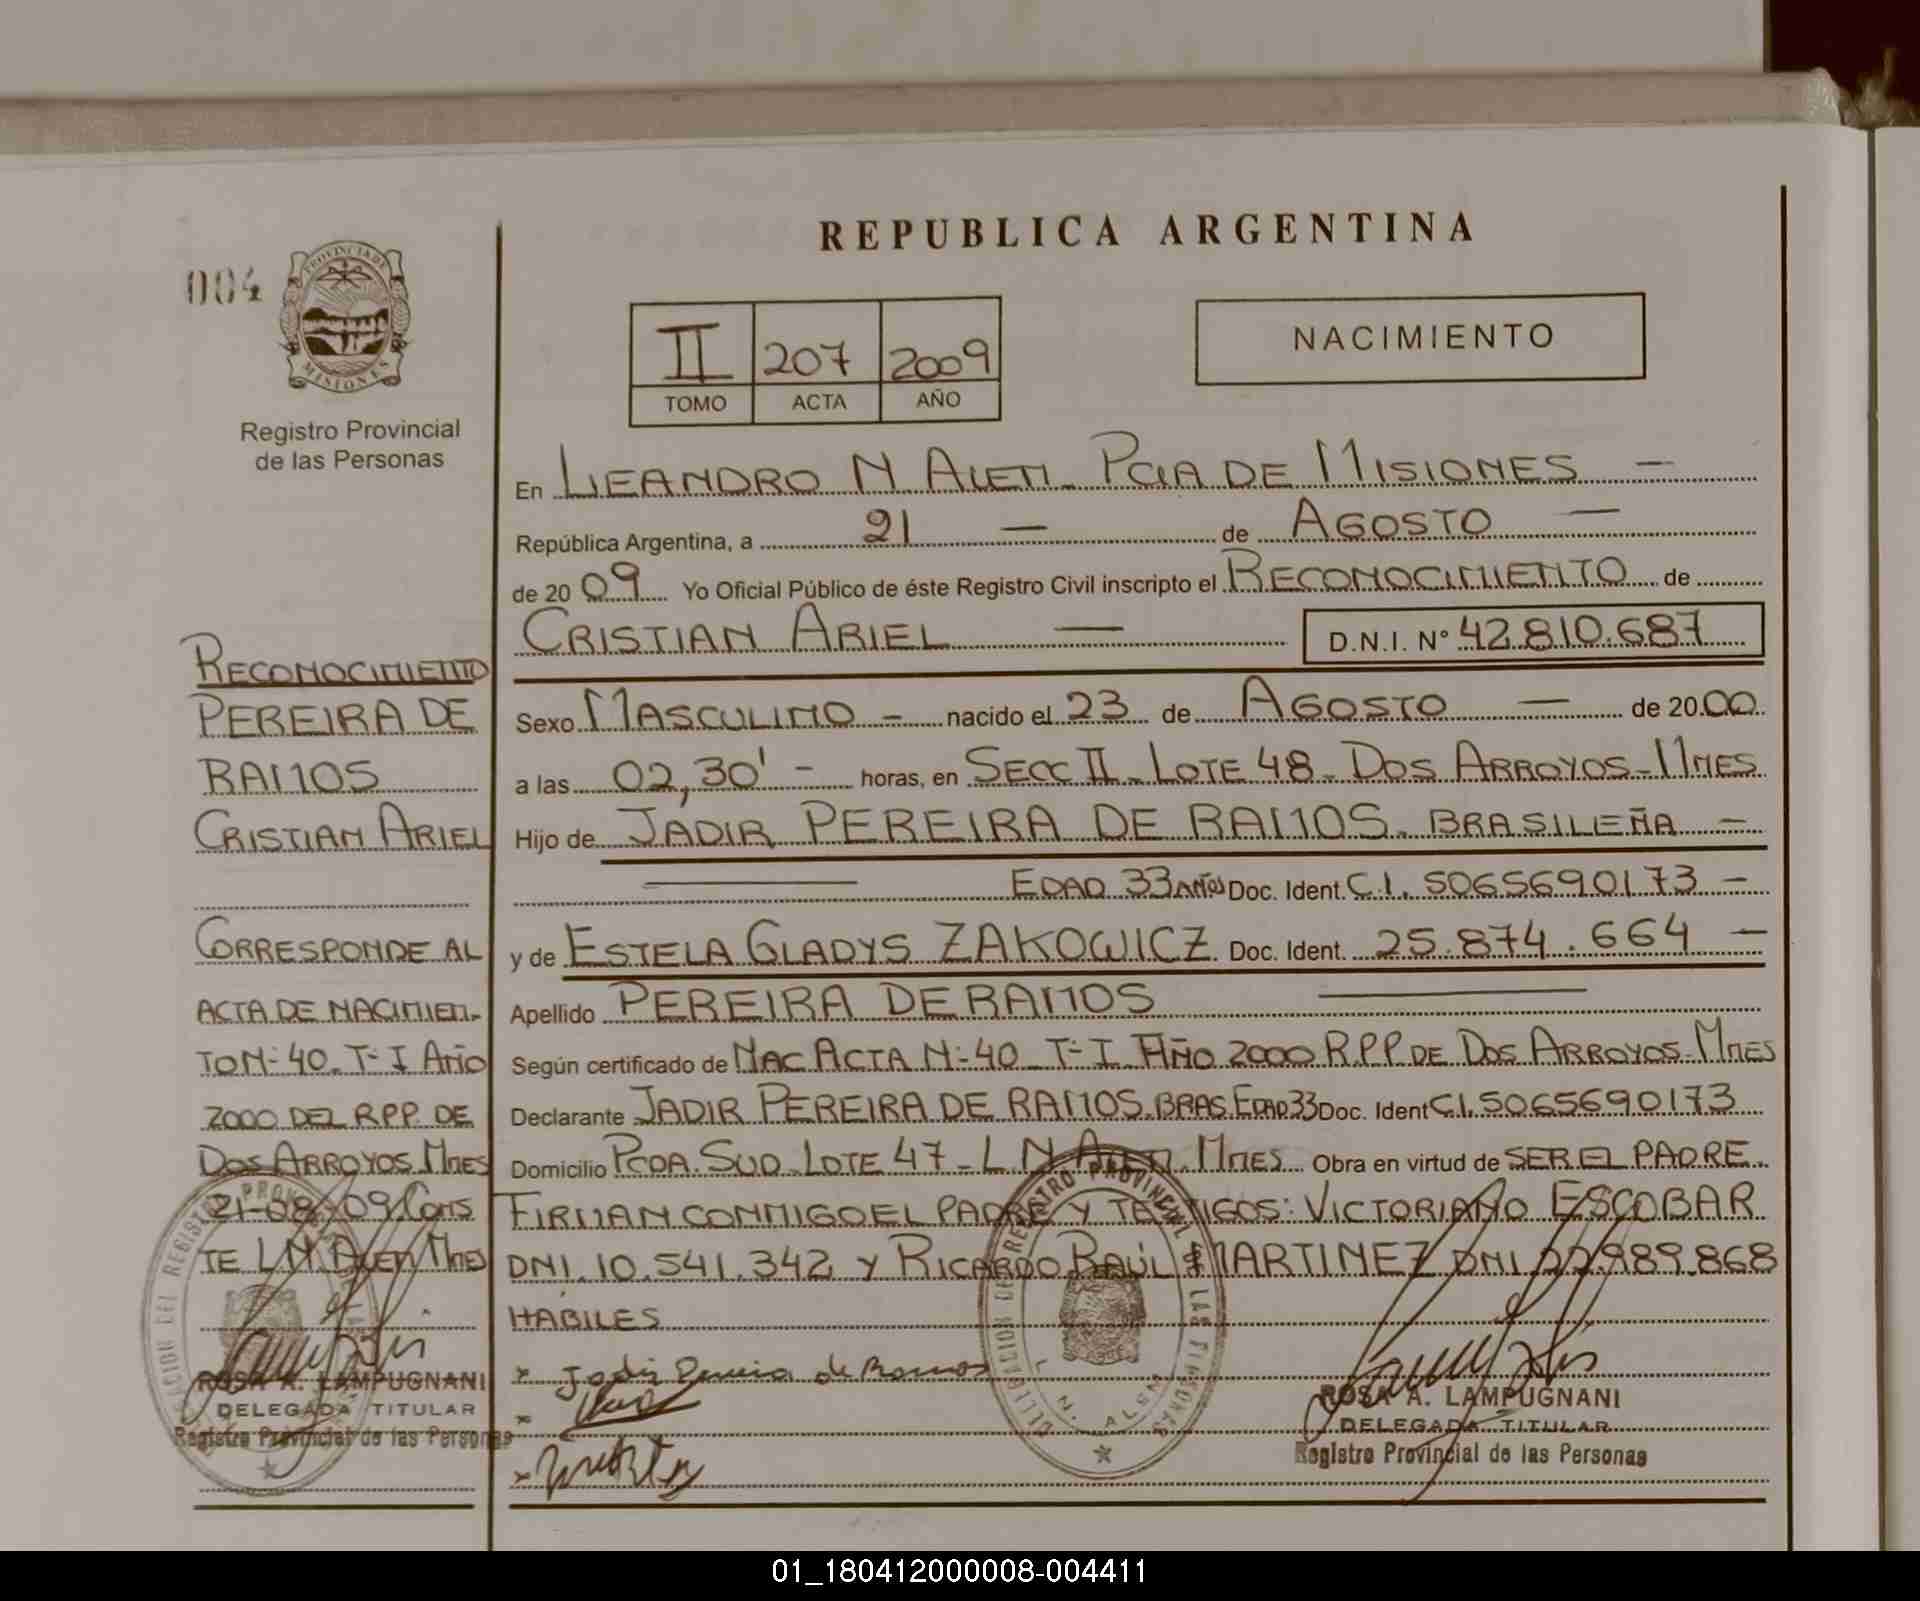 REPUBLICA ARGENTINA
004
PROVINCIA DE
MISIONES
Registro Provincial
de las Personas
II 207 2009
TOMO ACTA AÑO
NACIMIENTO
En LEANDRO N ALEM - PCIA DE MISIONES —
República Argentina, a 21 — de AGOSTO —
de 20 09 Yo Oficial Público de éste Registro Civil inscripto el RECONOCIMIENTO de
CRISTIAN ARIEL — D.N.I. N° 42.810.687
Sexo MASCULINO - nacido el 23 de AGOSTO — de 20 00
a las 02,30' - horas, en SECC II - LOTE 48 - DOS ARROYOS - MNES
Hijo de JADIR PEREIRA DE RAMOS. BRASILEÑA —
EDAD 33 AÑOS Doc. Ident. C.I. 5065690173 —
y de ESTELA GLADYS ZAKOWICZ. Doc. Ident. 25.874.664 —
Apellido PEREIRA DE RAMOS
Según certificado de NAC ACTA N: 40 - T: I AÑO 2000 R.P.P. DE DOS ARROYOS - MNES
Declarante JADIR PEREIRA DE RAMOS. BRAS. EDAD 33 Doc. Ident C.I. 5065690173
Domicilio PCDA. SUD - LOTE 47 - L.N. ALEM. MNES Obra en virtud de SER EL PADRE.
FIRMAN CONMIGO EL PADRE Y TESTIGOS: VICTORIANO ESCOBAR
DNI. 10.541.342 y RICARDO RAÚL MARTINEZ DNI 22.989.868
HABILES
x Jadir Pereira de Ramos
x
x
ROSA A. LAMPUGNANI
DELEGADA TITULAR
Registro Provincial de las Personas
DELEGACION DEL REGISTRO PROVINCIAL DE LAS PERSONAS
L. N. ALEM
RECONOCIMIENTO
PEREIRA DE
RAMOS
CRISTIAN ARIEL
CORRESPONDE AL
ACTA DE NACIMIEN-
TO N: 40. T: I AÑO
2000 DEL R.P.P. DE
DOS ARROYOS. MNES
21-08-09. CONS
TE L.N. ALEM MNES
ROSA A. LAMPUGNANI
DELEGADA TITULAR
Registro Provincial de las Personas
01_180412000008-004411